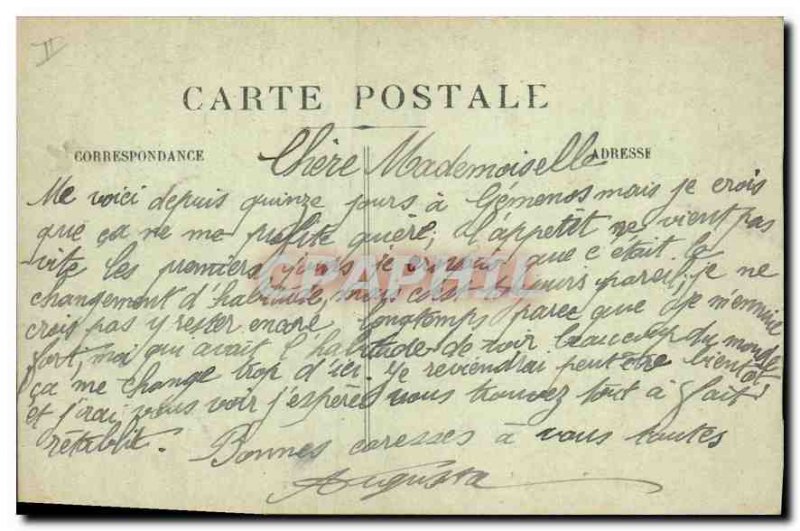 II
CARTE POSTALE
CORRESPONDANCE
ADRESSE
Chère Mademoiselle
Me voici depuis quinze jours à Gémenos mais je crois
que ça ne me profite guère, l'appetit ne vient pas
vite les premiers jours je croyais que c'était le
changement d'habitude, mais c'est toujours pareil, je ne
crois pas y rester encore longtemps parce que je m'ennuie
fort, moi qui avait l'habitude de voir beaucoup du monde
ça me change trop d'ici. Je reviendrai peut être bientôt
et j'irai vous voir j'espère vous trouvez tout à fait
rétablit. Bonnes caresses à vous toutes
Augusta
CPAPHIL